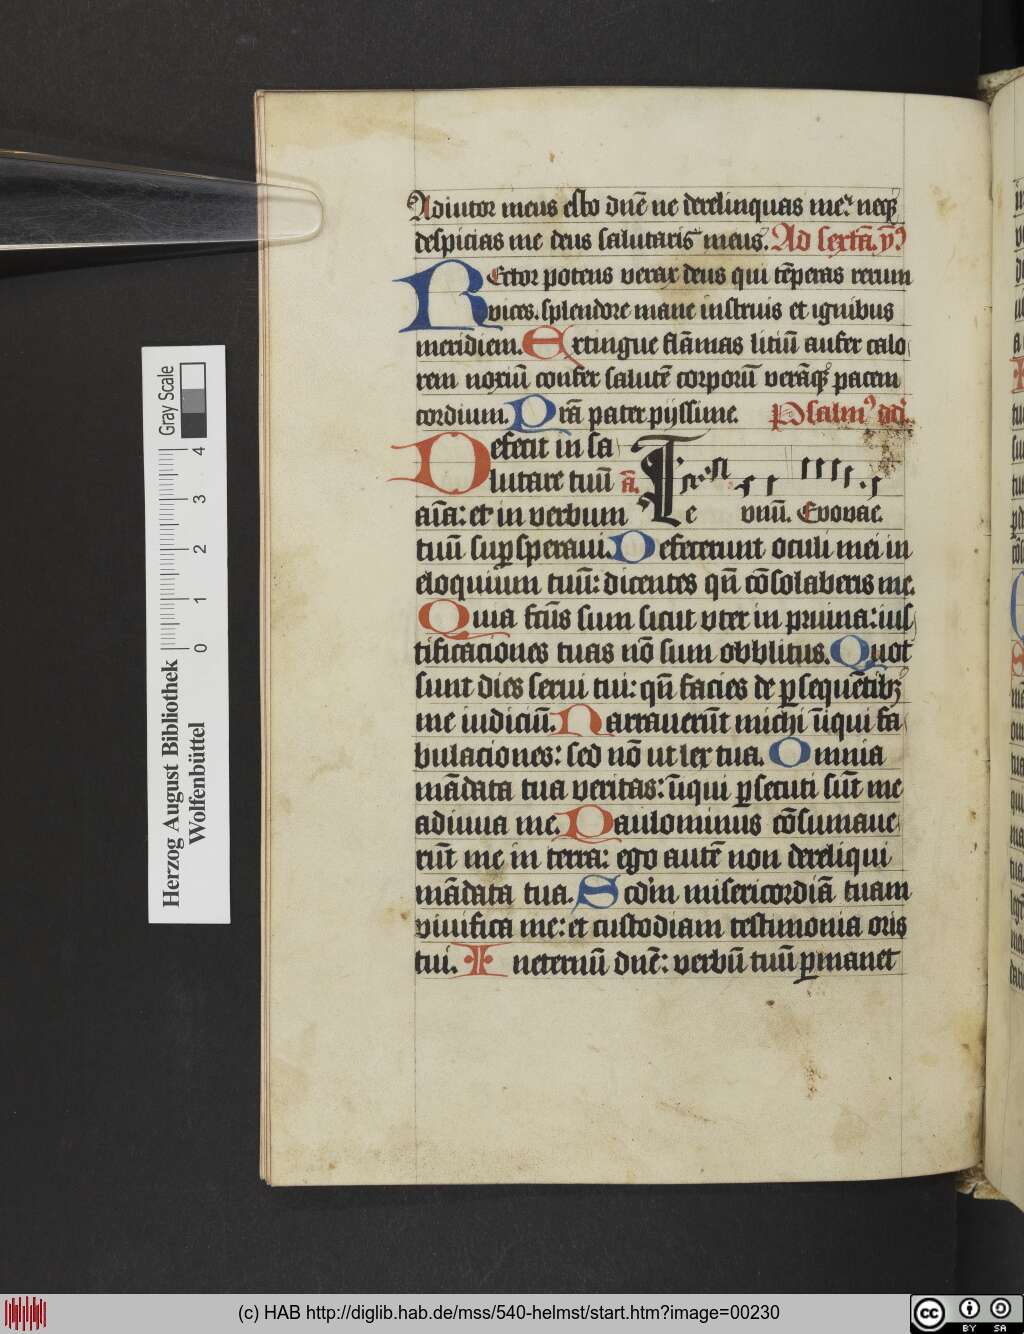 Adiutor meus esto dnē ne derelinquas me: neq₃
despicias me deus salutaris meus. Ad sextā. ỹ
REctor potens verax deus qui tēperas rerum
vices. splendore mane instruis et ignibus
meridiem. Extingue flāmas litiū aufer calo
rem noxiū confer salutē corporū verāq₃ pacem
cordium. Prā pater pijssime. Psalmꝰ dd̄.
Defecit in sa
lutare tuū a. Te vnū. Evovae.
aīa: et in verbum
tuū suꝑsperaui. Defecerunt oculi mei in
eloquium tuū: dicentes qn̄ cōsolaberis me.
Quia fcūs sum sicut vter in pruina: ius
tificaciones tuas nō sum obblitus. Quot
sunt dies serui tui: qn̄ facies de ꝑsequētib₃
me iudiciū. Narrauerūt michi īiqui fa
bulaciones: sed nō ut lex tua. Omnia
mādata tua veritas: īiqui ꝑsecuti sūt me
adiuua me. Paulominus cōsumaue
rūt me in terra: ego autē non dereliqui
mādata tua. Scd̄m misericordiā tuam
viuifica me: et custodiam testimonia oris
tui. In eternū dnē: verbū tuū ꝑmanet
Gray Scale
0 1 2 3 4
Herzog August Bibliothek
Wolfenbüttel
(c) HAB http://diglib.hab.de/mss/540-helmst/start.htm?image=00230
cc BY SA